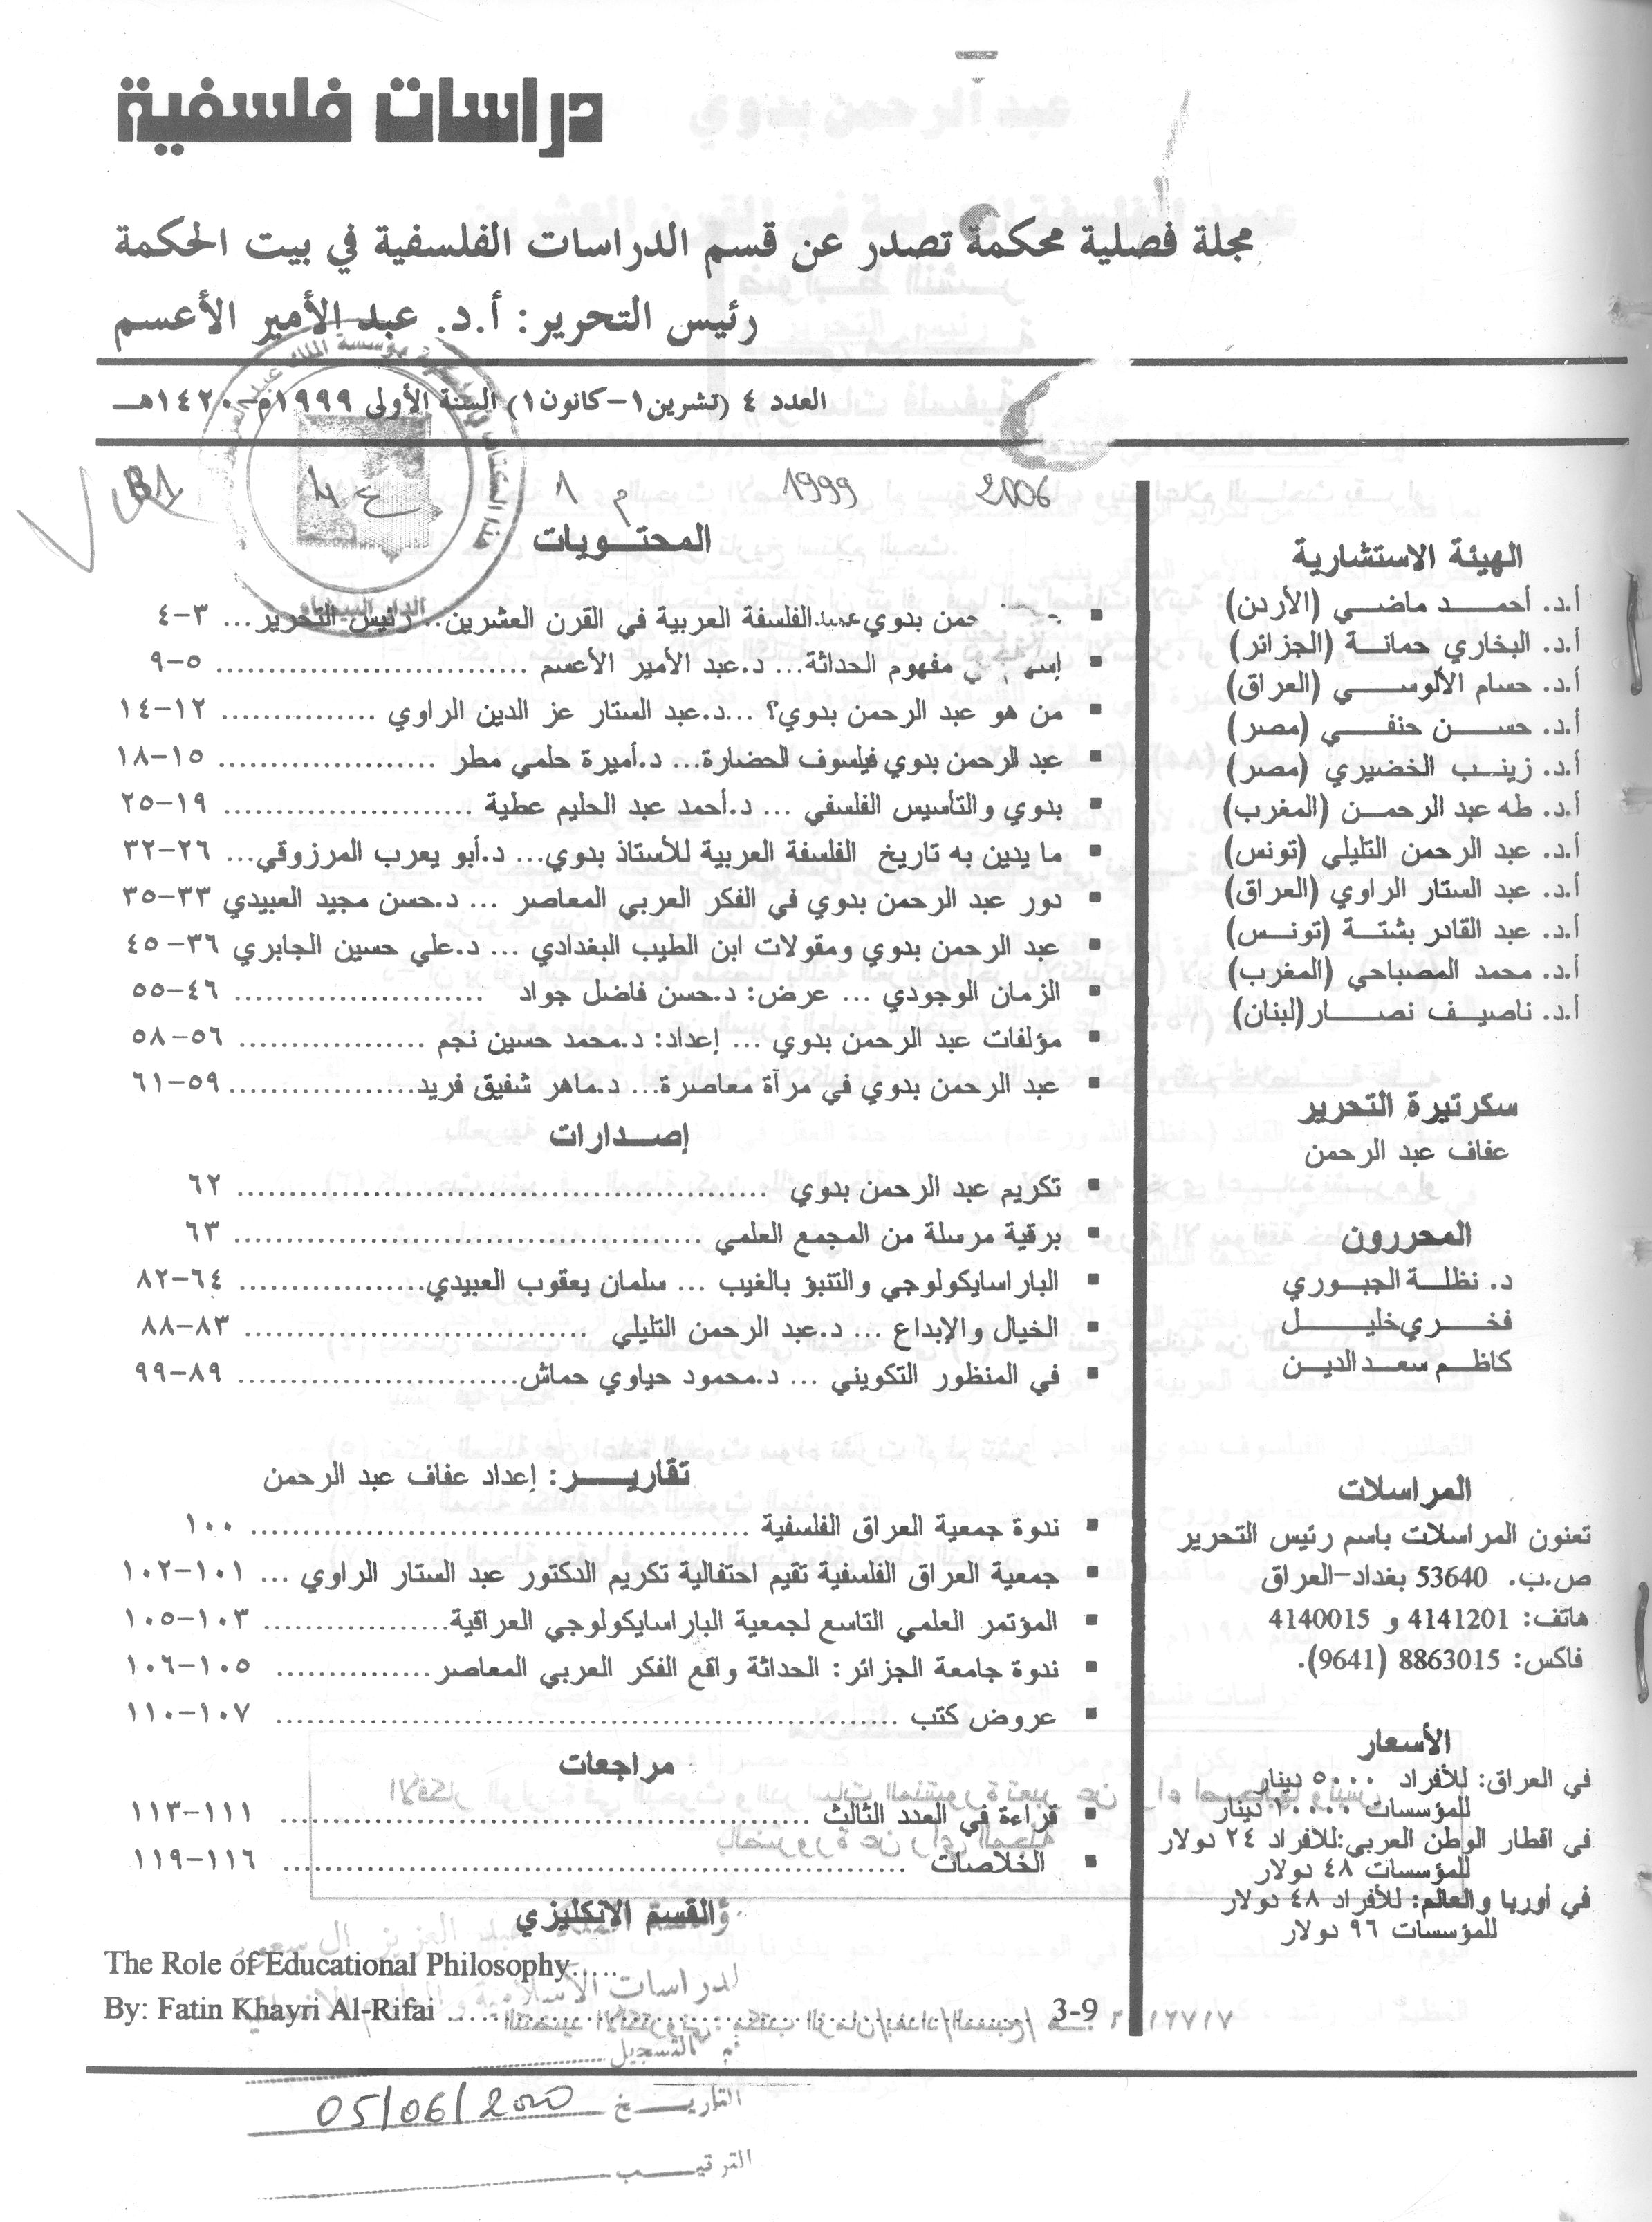 دراسات فلسفية
مجلة فصلية محكمة تصدر عن قسم الدراسات الفلسفية في بيت الحكمة
رئيس التحرير: أ.د. عبد الأمير الأعسم
العدد ٤ (تشرين١-كانون١) السنة الأولى ١٩٩٩م-١٤٢٠هـ
1999 2106
الهيئة الاستشارية
أ.د. أحمد ماضي (الأردن)
أ.د. البخاري حمانة (الجزائر)
أ.د. حسام الألوسي (العراق)
أ.د. حسن حنفي (مصر)
أ.د. زينب الخضيري (مصر)
أ.د. طه عبد الرحمن (المغرب)
أ.د. عبد الرحمن التليلي (تونس)
أ.د. عبد الستار الراوي (العراق)
أ.د. عبد القادر بشتة (تونس)
أ.د. محمد المصباحي (المغرب)
أ.د. ناصيف نصار(لبنان)
سكرتيرة التحرير
عفاف عبد الرحمن
المحررون
د. نظلة الجبوري
فخري خليل
كاظم سعد الدين
المراسلات
تعنون المراسلات باسم رئيس التحرير
ص.ب. 53640 بغداد-العراق
هاتف: 4141201 و 4140015
فاكس: 8863015 (9641).
الأسعار
في العراق: للأفراد ٥٠٠٠ دينار
للمؤسسات ١٠٠٠٠ دينار
في اقطار الوطن العربي:للأفراد ٢٤ دولار
للمؤسسات ٤٨ دولار
في أوربا والعالم: للأفراد ٤٨ دولار
للمؤسسات ٩٦ دولار
المحتويات
▪ حمن بدوي عميد الفلسفة العربية في القرن العشرين.. رئيس التحرير... ٣-٤
▪ مفهوم الحداثة... د.عبد الأمير الأعسم ........ ٥-٩
▪ من هو عبد الرحمن بدوي؟ ...د.عبد الستار عز الدين الراوي ........ ١٢-١٤
▪ عبد الرحمن بدوي فيلسوف الحضارة... د.أميرة حلمي مطر ........ ١٥-١٨
▪ بدوي والتأسيس الفلسفي ... د.أحمد عبد الحليم عطية ........ ١٩-٢٥
▪ ما يدين به تاريخ الفلسفة العربية للأستاذ بدوي... د.أبو يعرب المرزوقي... ٢٦-٣٢
▪ دور عبد الرحمن بدوي في الفكر العربي المعاصر ... د.حسن مجيد العبيدي ٣٣-٣٥
▪ عبد الرحمن بدوي ومقولات ابن الطيب البغدادي ... د.علي حسين الجابري ٣٦-٤٥
▪ الزمان الوجودي ... عرض: د.حسن فاضل جواد ........ ٤٦-٥٥
▪ مؤلفات عبد الرحمن بدوي ... إعداد: د.محمد حسين نجم ........ ٥٦-٥٨
▪ عبد الرحمن بدوي في مرآة معاصرة... د.ماهر شفيق فريد........ ٥٩-٦١
إصدارات
▪ تكريم عبد الرحمن بدوي ........ ٦٢
▪ برقية مرسلة من المجمع العلمي ........ ٦٣
▪ الباراسايكولوجي والتنبؤ بالغيب ... سلمان يعقوب العبيدي........ ٦٤-٨٢
▪ الخيال والإبداع ... د.عبد الرحمن التليلي ........ ٨٣-٨٨
▪ في المنظور التكويني ... د.محمود حياوي حماش........ ٨٩-٩٩
تقارير: إعداد عفاف عبد الرحمن
▪ ندوة جمعية العراق الفلسفية ........ ١٠٠
▪ جمعية العراق الفلسفية تقيم احتفالية تكريم الدكتور عبد الستار الراوي ... ١٠١-١٠٢
▪ المؤتمر العلمي التاسع لجمعية الباراسايكولوجي العراقية........ ١٠٣-١٠٥
▪ ندوة جامعة الجزائر: الحداثة واقع الفكر العربي المعاصر........ ١٠٥-١٠٦
▪ عروض كتب ........ ١٠٧-١١٠
مراجعات
▪ قراءة في العدد الثالث ........ ١١١-١١٣
▪ الخلاصات ........ ١١٦-١١٩
القسم الانكليزي
The Role of Educational Philosophy.....
By: Fatin Khayri Al-Rifai ........ 3-9
التسجيل
التاريخ 05/06/2000
الترتيب